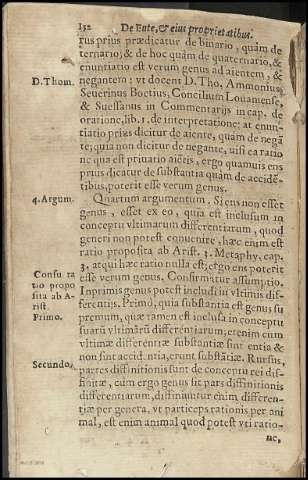 132 De Ente, & eius proprietatibus.
rus prius prædicatur de binario, quàm de
ternario; & de hoc quàm de quaternario, &
enuntiatio est verum genus ad aientem, &
D. Thom. negantem: vt docent D. Tho. Ammonius,
Seuerinus Boetius, Concilium Louaniense,
& Suessanus in Commentarijs in cap. de
oratione, lib. 1. de interpretatione: at enun-
tiatio prius dicitur de aiente, quàm de negã
te; quia non dicitur de negante, nisi ea ratio
ne qua est priuatio aiẽtis, ergo quamuis ens
prius dicatur de substantia quàm de acciden-
tibus, poterit esse verum genus.
4. Argum. Quartum argumentum. Si ens non esset
genus, esset ex eo, quia est inclusum in
conceptu vltimarum differentiarum, quod
generi non potest conuenire, hæc enim est
ratio proposita ab Arist. 3. Metaphy. cap.
3. at qui hæc ratio nulla est; ergo ens poterit
Confutatio esse verum genus. Confirmatur assumptio.
propo Inprimis genus potest includi in vltimis dif-
sita ab A- ferentijs. Primò, quia substantia est genus su
rist.
Primo. premum, quæ tamen est inclusa in conceptu
suarũ vltimarũ differentiarum; etenim cum
vltimæ differentiæ substantiæ sint entia &
non sint accidentia, erunt substãtiæ. Rursus,
Secundo, partes diffinitionis sunt de conceptu rei dif-
finitæ, cùm ergo genus sit pars diffinitionis
differentiarum, diffiniuntur enim differen-
tiæ per genera, vt particeps rationis per ani
mal, est enim animal quod potest vti ratio-
ne,